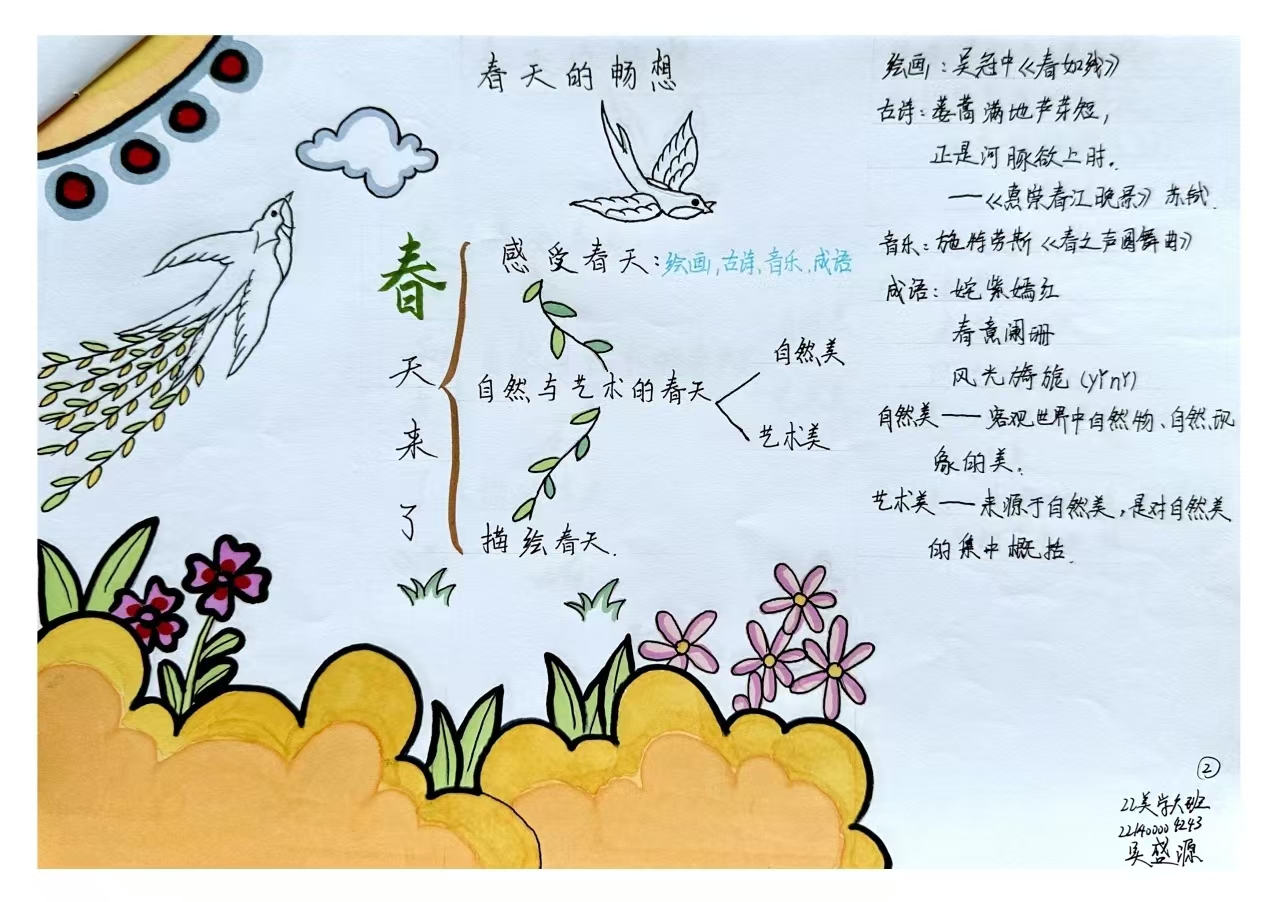 春天的畅想
春天来了
感受春天:绘画,古诗、音乐,成语
自然与艺术的春天
自然美
艺术美
描绘春天.
绘画:吴冠中《春如线》
古诗:蒌蒿满地芦芽短,
正是河豚欲上时.
——《惠崇春江晚景》苏轼.
音乐:施特劳斯《春之声圆舞曲》
成语:姹紫嫣红
春意阑珊
风光旖旎(yǐnǐ)
自然美——客观世界中自然物、自然现
象的美.
艺术美——来源于自然美,是对自然美
的集中概括.
②
22美学大班
221400004243
吴盛源